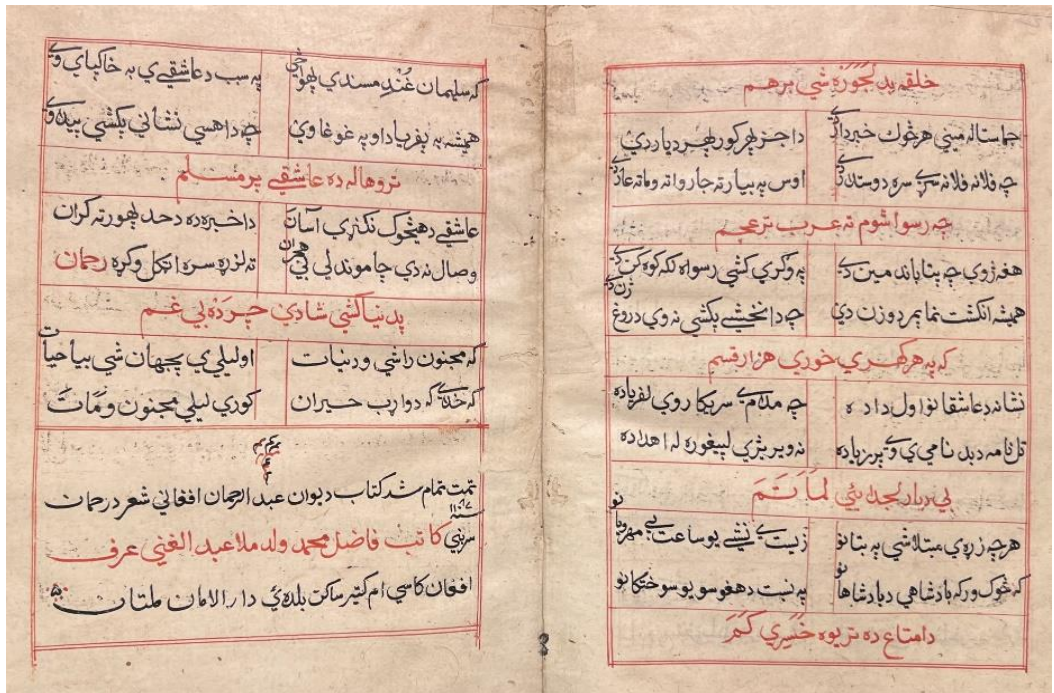 خلقه پدلحوزه شي برهم
چماستاله ميني هرڅوک خبرداردي داجز پرکورپهرديارردي
چه فلانه فلانه سړے سره دوستاردی اوس په بيارته جاروانه وماته عاردی
چه رسوا شوم ته عرب ترعجم
هغه ژوي چه پتاباندمين دے په وکړي کښي رسواه لکه کوه کن دے
هميشه انکشت نمايه مردوزن دي چه دا نخښے پکښي نه وي دروغژن دے
که په هرکهړي خوري هزار قسم
نشانه دعاشقانو اول داده چه ملامے سريکاروي لفرياده
تل نامه دبدنامي ي وے پرزياده نه ويريژي لپيغوره له اهداده
بي ديارلجدايئي لماتم
هرچه زړه ي مبتلا شي په بتانو زيست ے نيشے يو ساعت بے مهروبانو
که څوک ورکه بادشاهي دبادشاهانو په نسبت دهغو سويو سوختکانو
دامتاع ده تريوه خسيري کم
که سليمان غُندِ مسندي پهواځي په سبب دعاشقے ي به خاکپاي وي
هميشه به پفرياد او په غوغا وي چه داهسي نشاني پکښي پيداوي
تروهاله ده عاشقي پر مسلم
عاشقے دهيڅوک نکنړي آسان داخبره ده دحد پهورته کران
وصال نه دي چاموندلي بي هجران ته لزړه سره اټکل وکړه رحمان
پدنيا کښي شادي چرده بي غم
که مجنون راشي وردنيات اوليلي ي پجهان شي بيا حيات
که خدای که دوارب حيران کوري ليلي مجنون ومات
تمت تمام شد کتاب ديوان عبدالرحمان افغاني شعر درحمان
سړبني کاتب فاضل محمد ولد ملا عبدالغني عرف
افغان کاسي ام کتير ساکن بلدهٔ دارالامان ملتان